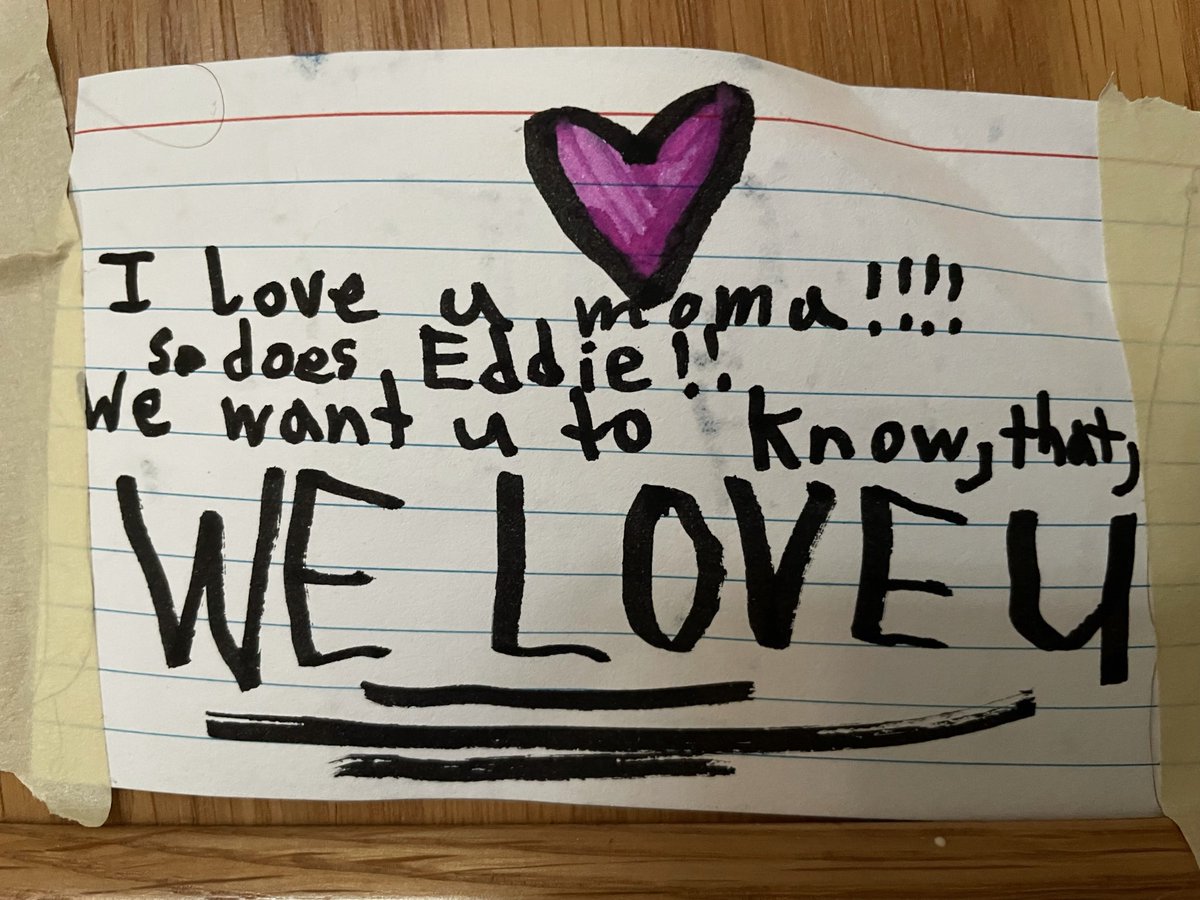 I love u moma!!!!
so does Eddie!!
We want u to know, that,
WE LOVE U